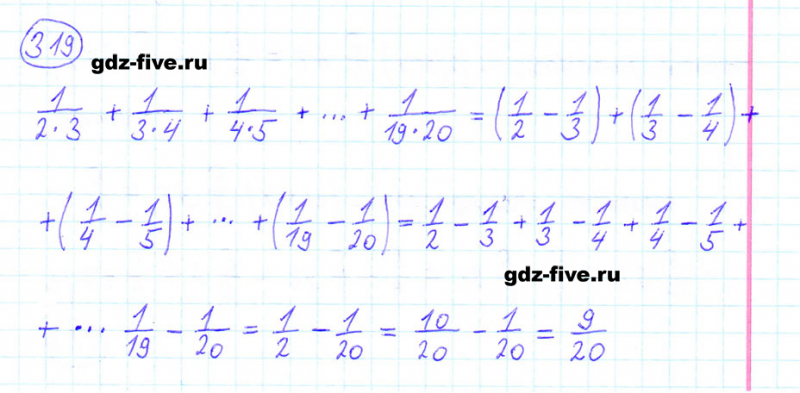 319
gdz-five.ru
1/(2·3) + 1/(3·4) + 1/(4·5) + ... + 1/(19·20) = (1/2 − 1/3) + (1/3 − 1/4) +
+ (1/4 − 1/5) + ... + (1/19 − 1/20) = 1/2 − 1/3 + 1/3 − 1/4 + 1/4 − 1/5 +
gdz-five.ru
+ ... 1/19 − 1/20 = 1/2 − 1/20 = 10/20 − 1/20 = 9/20